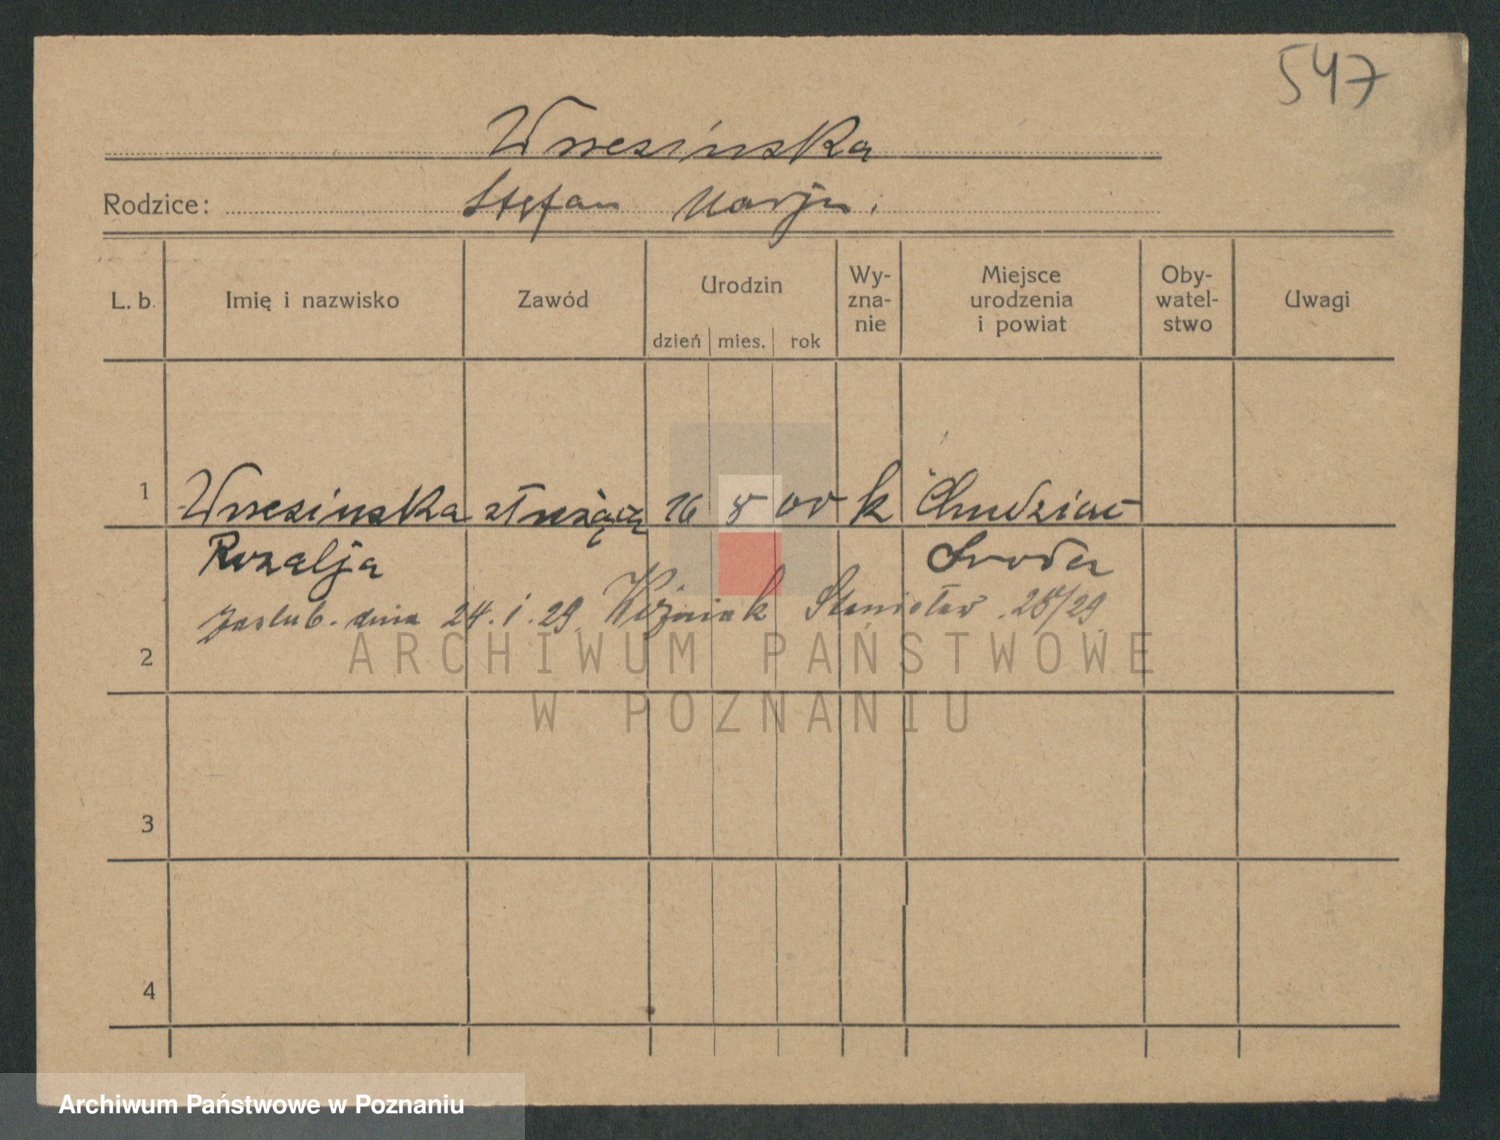 547
Wrzesińska
Rodzice: Stefan Marja.
L. b. Imię i nazwisko Zawód Urodzin Wy-zna-nie Miejsce urodzenia i powiat Oby-watel-stwo Uwagi
dzień mies. rok
1 Wrzesińska służąca 16 8 00 k
Rozalja Środa
zaślub. dnia 24.1.29 Woźniak Stanisław 28/29
2
ARCHIWUM PAŃSTWOWE
W POZNANIU
3
4
Archiwum Państwowe w Poznaniu